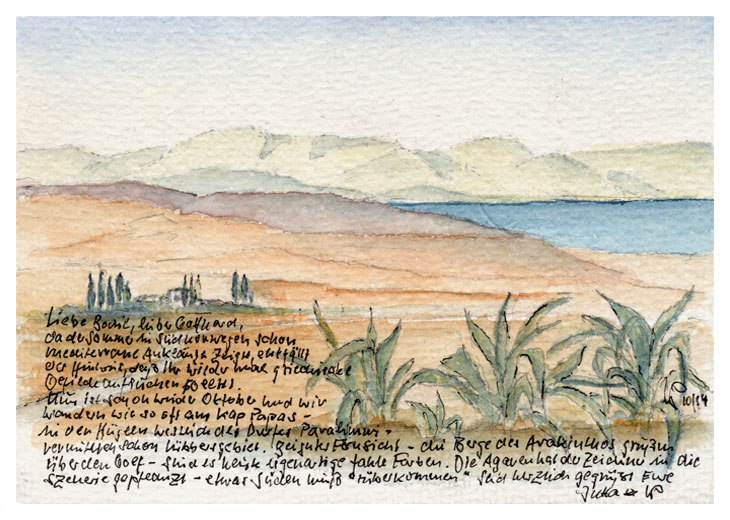 Liebe Bodil, lieber Gotthard,
da der Sommer in Südnorwegen schon
mediterrane Anklänge zeigt, entfällt
der Hinweis, dass Ihr wieder mal griechische
Gefilde aufsuchen solltet.
Nun ist schon wieder Oktober und wir
wandern wie so oft am Kap Papas -
in den Hügeln westlich des Dorfes
vermutlich schon Hubers Fernsicht - die Berge des Arakinthos grüßen
über den Golf - sind es heute eigenartige fahle Farben. Die Agaven hat der Zeichner in die
Szenerie gepflanzt - etwas Süden muß "rüberkommen" Seid herzlich gegrüßt Eure
Jutta +
10/14